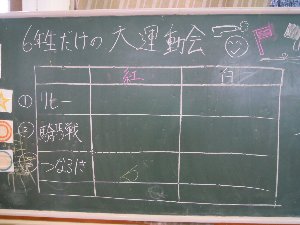 6年生だけの大運動会
紅 白
① リレー
② 騎馬戦
③ つなひき